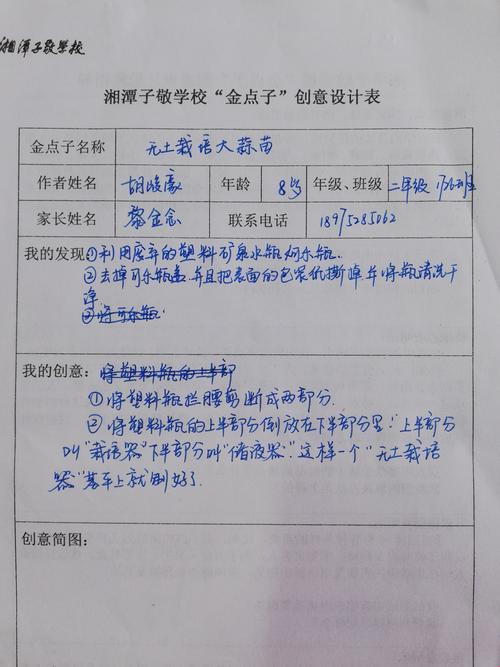 湘潭子敬学校
湘潭子敬学校“金点子”创意设计表
金点子名称 无土栽培大蒜苗
作者姓名 胡峻豪 年龄 8岁 年级、班级 二年级 1726班
家长姓名 黎金念 联系电话 18975285062
我的发现①利用废弃的塑料矿泉水瓶可乐瓶.
②去掉可乐瓶盖并且把表面的包装纸撕掉并将瓶清洗干
净.
③将可乐瓶.
我的创意: 将塑料瓶的上半部
①将塑料瓶拦腰剪断成两部分.
②将塑料瓶的上半部分倒放在下半部分里."上半部分
叫"栽培器"下半部分叫"储液器".这样一个"无土栽培
器"基本上就制好了.
创意简图: